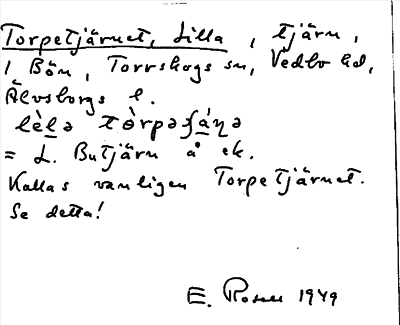 Torpetjärnet, Lilla, tjärn,
i Bön, Torrskogs sn, Vedbo hd,
Älvsborgs l.
lèlə tòrpəʃáŋə
= L. Butjärn å ek.
Kallas vanligen Torpetjärnet.
Se detta!
E. Rosell 1949